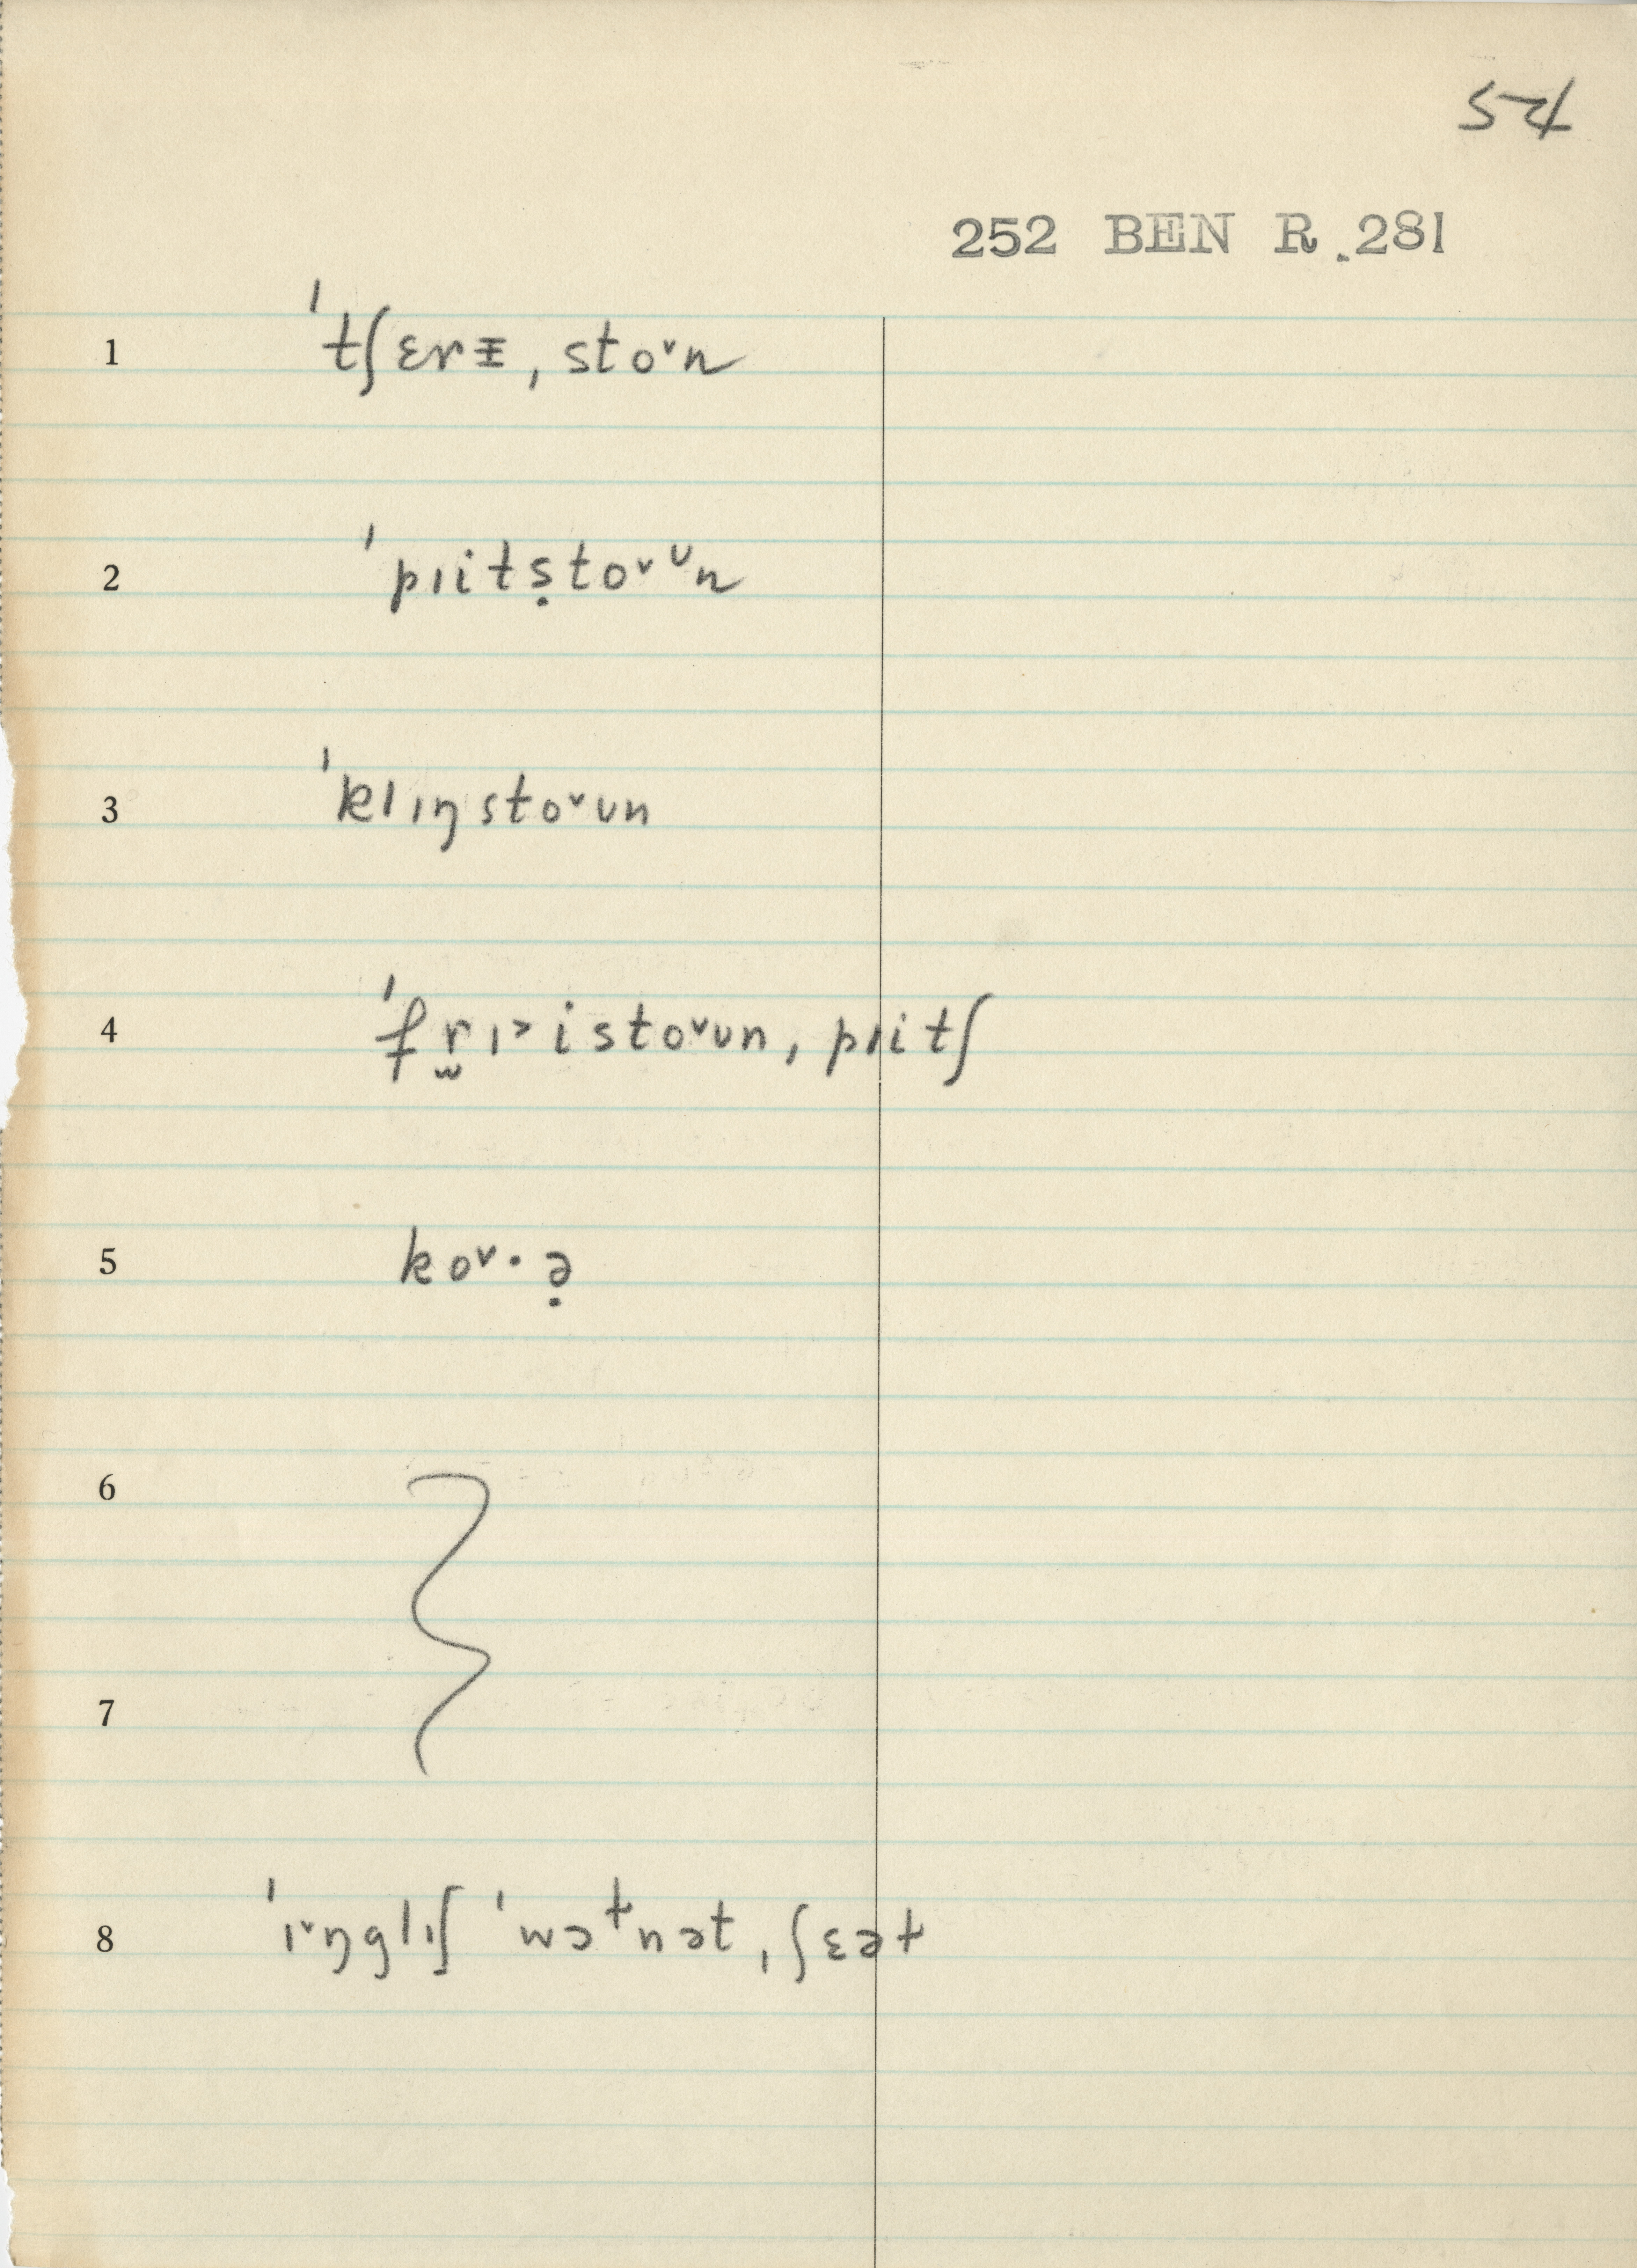 54
252 BEN R.281
1 ˈtʃɛrᵻ, stoᵛn
2 ˈpɪits̩toᵛᶸn
3 ˈklɪŋstoᵛʊn
4 ˈfr̫ɪ˃istoᵛʊn, pɪitʃ
5 koᵛ·ə̣
6
7
8 ˈɪᵛŋglɪʃ ˈwɔɫnət, ʃɛəɫ